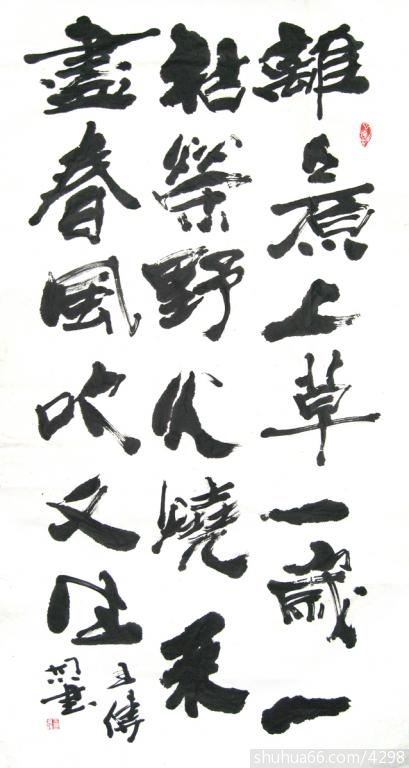 離々原上草一歲一
枯榮野火燒不
盡春風吹又生
書
shuhua66.com/4298